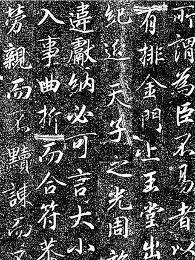 所謂為臣不易者
有排金門上玉堂出
紀返天子之光周
違獻納必可言大小
入事曲折而合符
勞親而不黷諫而